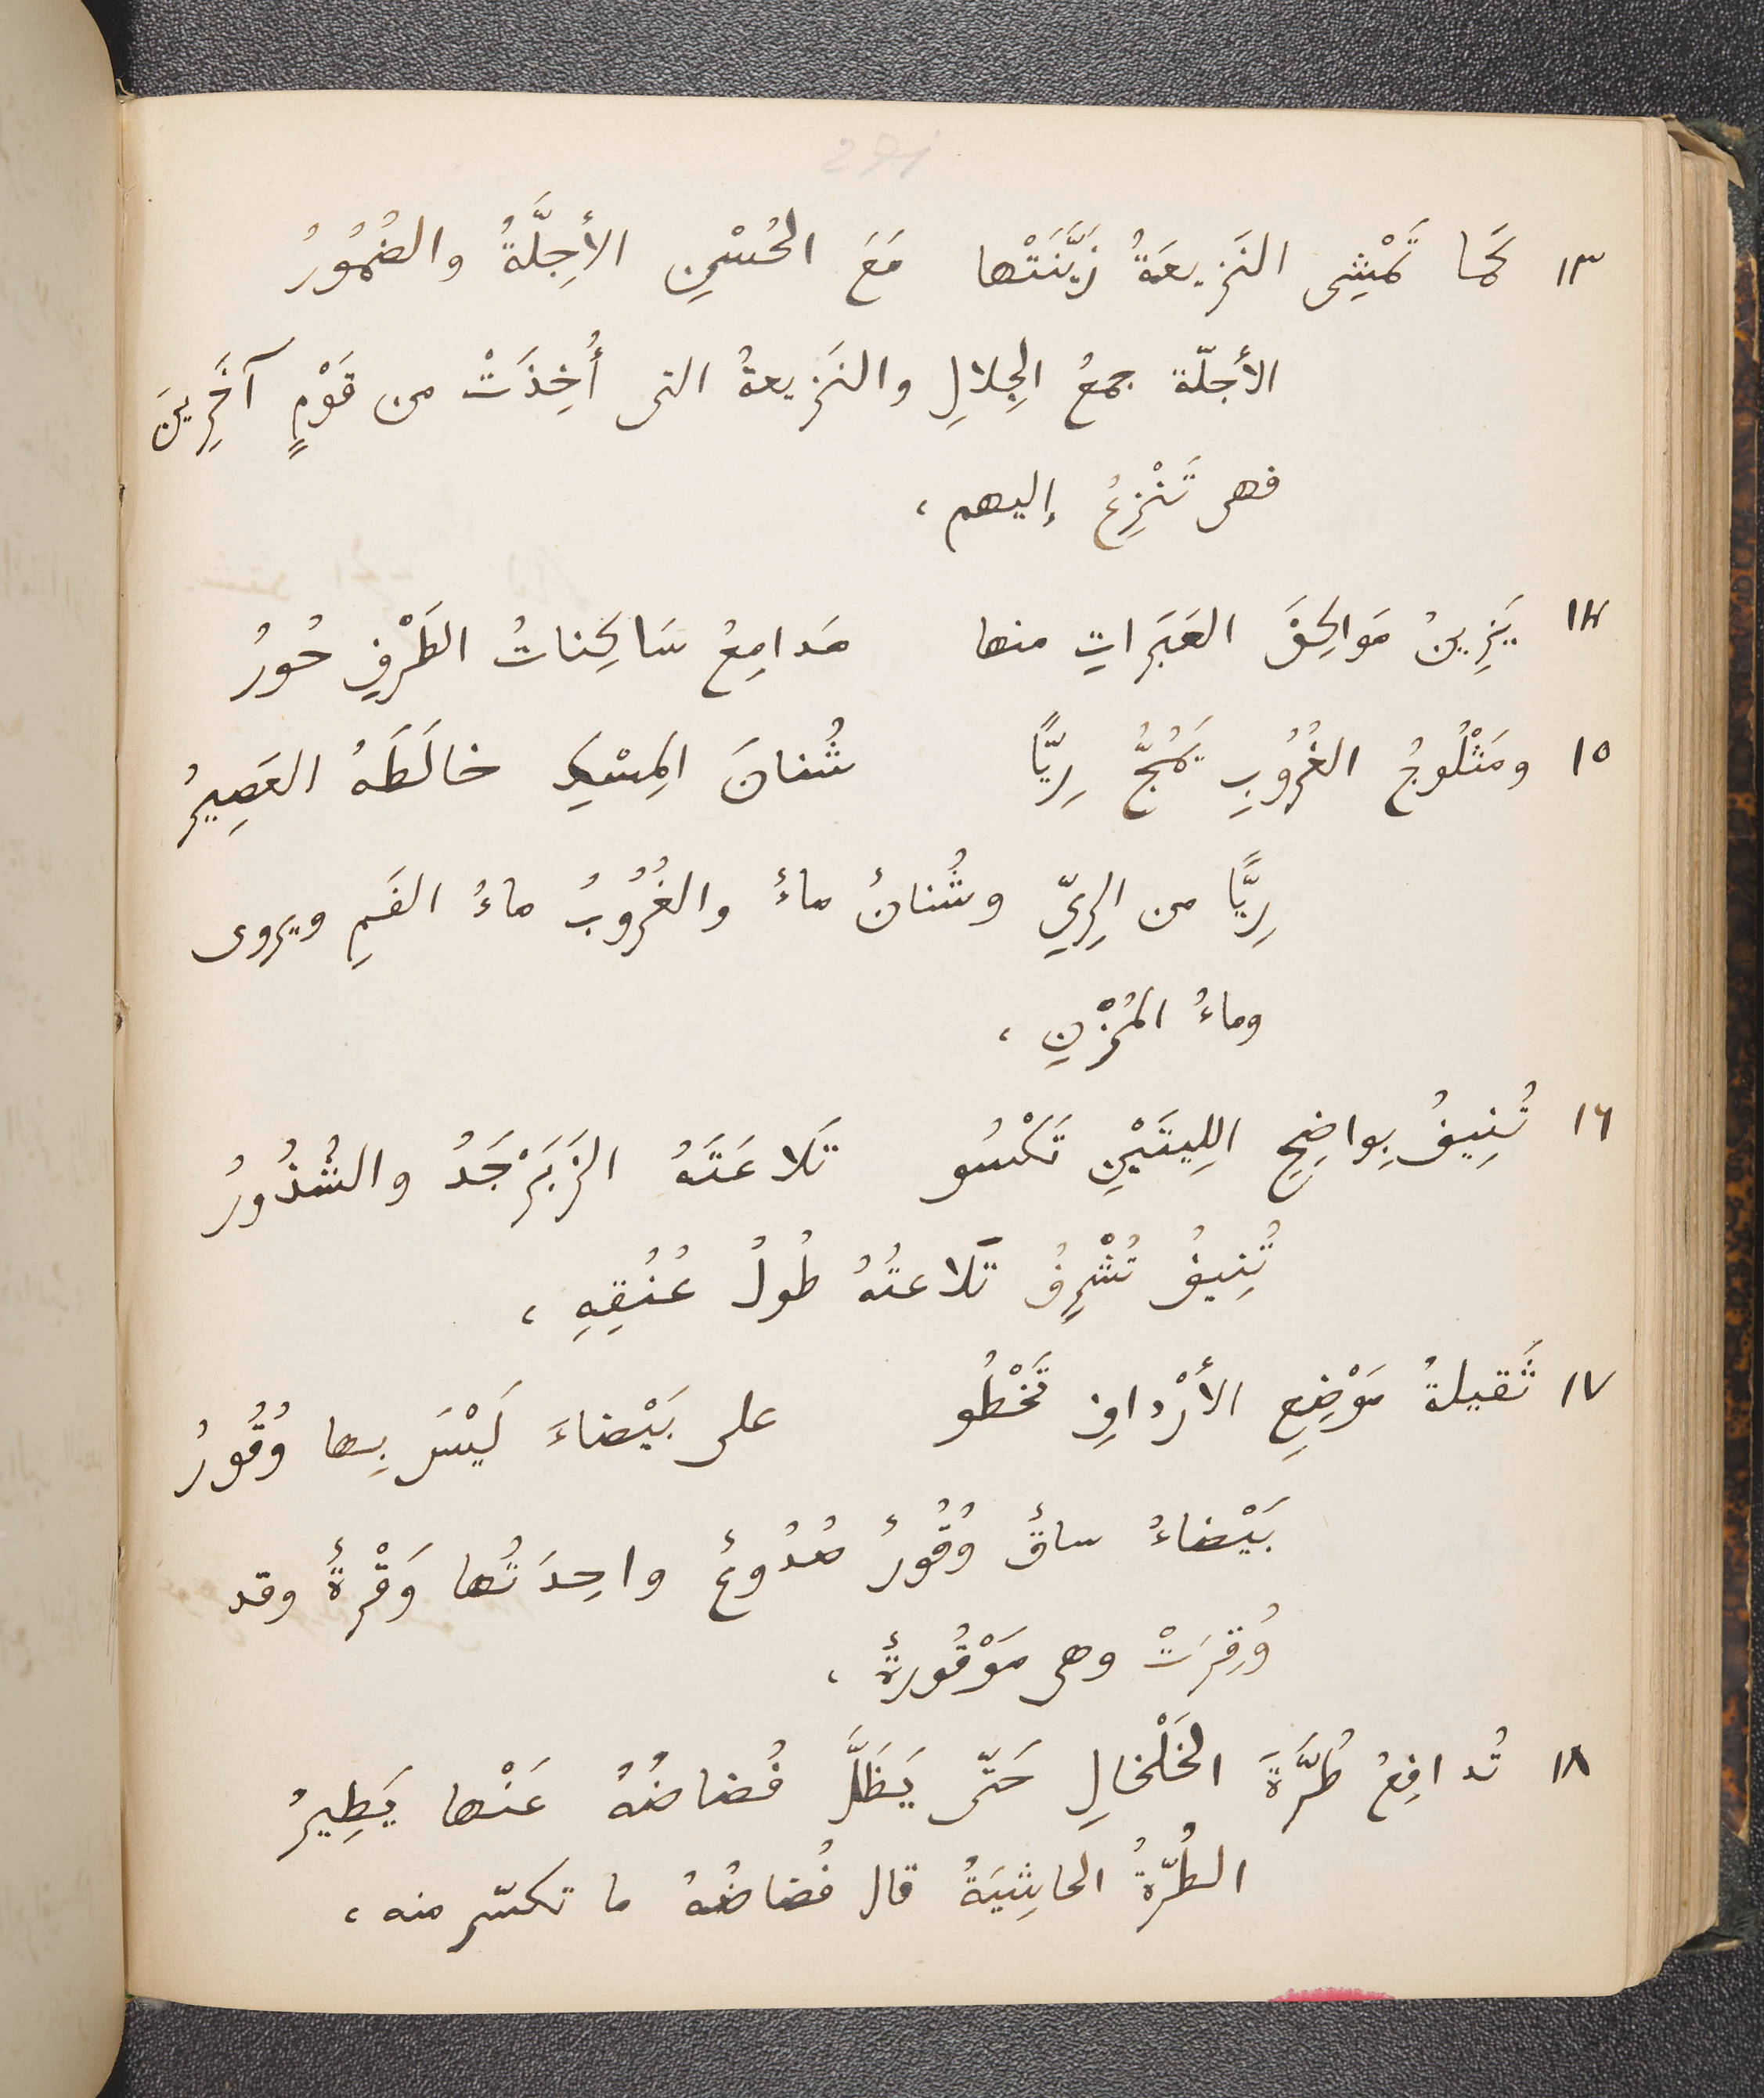 ١٣ كَما تَمْشِى النَزِيعَةُ زَيَّنَتْها مَعَ الحُسْنِ الأَجِلَّةُ والضُمُورُ
الأجلّة جمعُ الجِلالِ والنَزِيعةُ التى أُخِذَتْ من قَوْمٍ آخَرِينَ
فهى تَنْزِعُ إليهم ،
١٤ يَزِينُ مَوالِحَقَ العَبَراتِ منها مَدامِعُ سَاكِناتُ الطَرْفِ حُورُ
١٥ ومَثْلُوجُ الغُرُوبِ يَمُجُّ رِيًّا شُنانَ المِسْكِ خالَطَهُ العَصِيرُ
رِيًّا من الرِيِّ وشُنانٌ ماءٌ والغُرُوبُ ماءُ الفَمِ ويروى
وماءُ المُزْنِ ،
١٦ تُنِيفُ بِواضِحِ اللِيتَيْنِ تَكْسُو تَلاعَتَهُ الزَبَرْجَدُ والشُذُورُ
تُنِيفُ تُشْرِفُ تَلاعتُهُ طُولُ عُنُقِهِ ،
١٧ ثَقيلةُ مَوْضِعِ الأَرْدافِ تَخْطُو على بَيْضاءَ لَيْسَ بِها وُقُورُ
بَيْضاءُ ساقٌ وُقُورٌ صُدُوعٌ واحِدَتُها وَقْرةٌ وقد
وُقِرَتْ وهى مَوْقُورةٌ ،
١٨ تُدافِعُ طُرَّةَ الخَلْخالِ حَتّى يَظَلَّ فُضاضُهُ عَنْها يَطِيرُ
الطُرّةُ الحاشِيَةُ قال فُضاضُهُ ما تكسّر منه ،